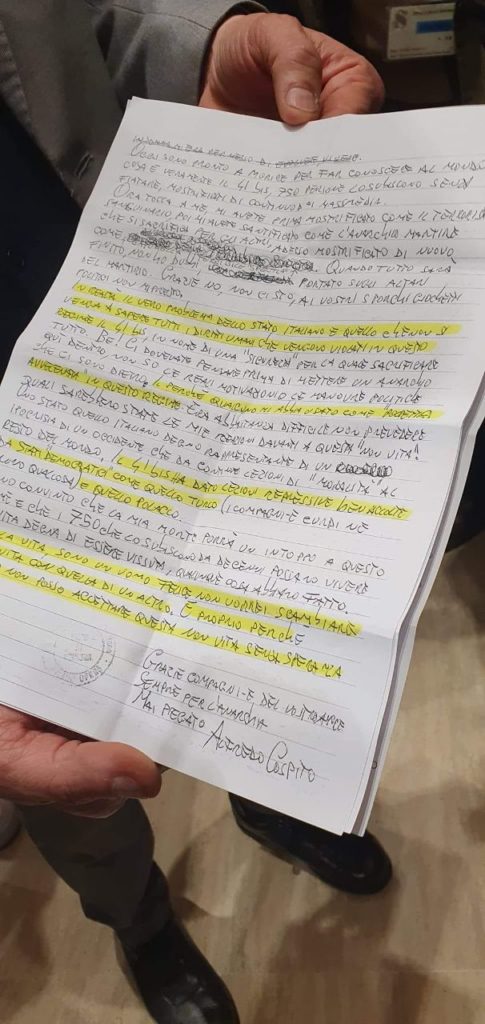 OGGI SONO PRONTO A MORIRE PER FAR CONOSCERE AL MONDO
COSA È VERAMENTE IL 41 BIS, 750 PERSONE LO SUBISCONO SENZA
FIATARE, MOSTRIFICATI DI CONTINUO DAI MASSMEDIA.
ORA TOCCA A ME, MI AVETE PRIMA MOSTRIFICATO COME IL TERRORISTA
SANGUINARIO POI MI AVETE SANTIFICATO COME L'ANARCHICO MARTIRE
CHE SI SACRIFICA PER GLI ALTRI, ADESSO MOSTRIFICATO DI NUOVO
COME, QUANDO TUTTO SARÀ
FINITO, NON HO DUBBI, PORTATO SUGLI ALTARI
DEL MARTIRIO. GRAZIE NO, NON CI STO, AI VOSTRI SPORCHI GIOCHETTI
POLITICI NON MI PRESTO.
IN REALTÀ IL VERO PROBLEMA DELLO STATO ITALIANO È QUELLO CHE NON SI
VENGA A SAPERE TUTTI I DIRITTI UMANI CHE VENGONO VIOLATI IN QUESTO
REGIME IL 41 BIS, IN NOME DI UNA "SICUREZZA" PER LA QUALE SACRIFICARE
TUTTO. BE'! CI DOVEVATE PENSARE PRIMA DI METTERE UN ANARCHICO
QUI DENTRO, NON SO LE REALI MOTIVAZIONI O LE MANOVRE POLITICHE
CHE CI SONO DIETRO. IL PERCHÉ QUALCUNO MI ABBIA USATO COME "POLPETTA
AVVELENATA" IN QUESTO REGIME. ERA ABBASTANZA DIFFICILE NON PREVEDERE
QUALI SAREBBERO STATE LE MIE REAZIONI DAVANTI A QUESTA "NON VITA".
UNO STATO QUELLO ITALIANO DEGNO RAPPRESENTANTE DI UN
IPOCRISIA DI UN OCCIDENTE CHE DA CONTINUE LEZIONI DI "MORALITÀ" AL
RESTO DEL MONDO. IL 41 BIS HA DATO LEZIONI REPRESSIVE BEN ACCOLTE
DA STATI DEMOCRATICI COME QUELLO TURCO (I COMPAGNI-E CURDI NE
SANNO QUALCOSA) E QUELLO POLACCO.
CONVINTO CHE LA MIA MORTE PORRÀ UN INTOPPO A QUESTO
E CHE I 750 CHE LO SUBISCONO DA DECENNI POSSANO VIVERE
VITA DEGNA DI ESSERE VISSUTA, QUALUNQUE COSA ABBIANO FATTO.
LA VITA, SONO UN UOMO FELICE NON VORREI SCAMBIARE
VITA CON QUELLA DI UN ALTRO. È PROPRIO PERCHÉ
NON POSSO ACCETTARE QUESTA NON VITA SENZA SPERANZA
GRAZIE COMPAGNI-E DEL VOSTRO AMORE
SEMPRE PER L'ANARCHIA
MAI PIEGATO ALFREDO COSPITO